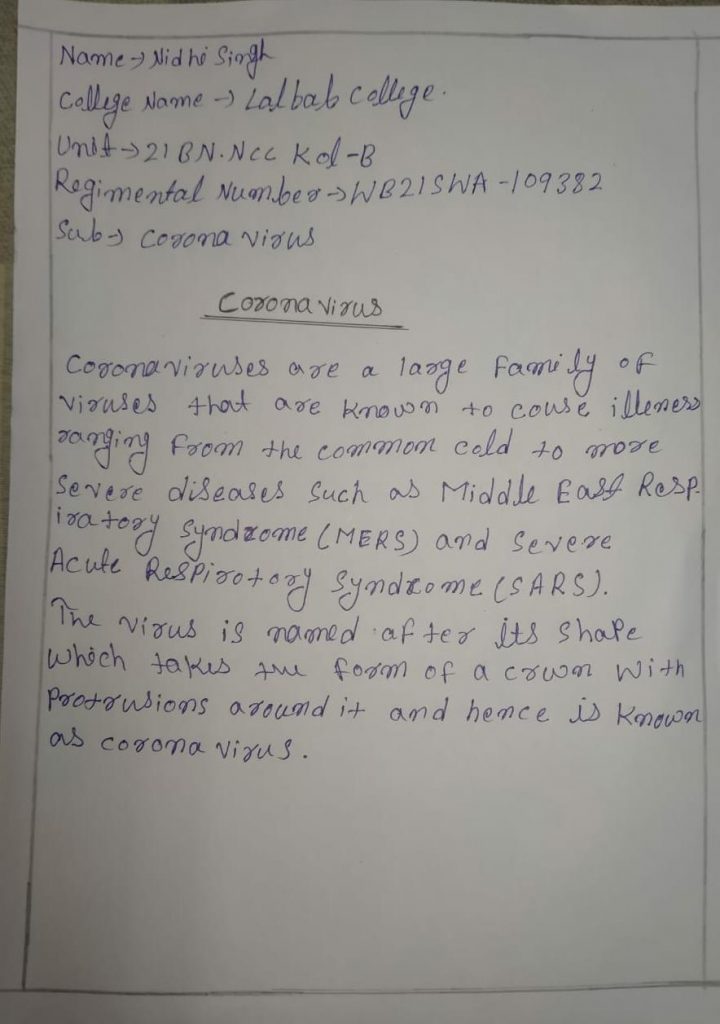 Name → Nidhi Singh
College Name → Lalbab College.
Unit → 21 BN. NCC Kol-B
Regimental Number → WB21SWA-109382
Sub → Corona virus
Coronavirus
Coronaviruses are a large family of
viruses that are known to couse illeness
ranging from the common cold to more
severe diseases such as Middle East Resp-
iratory Syndrome (MERS) and severe
Acute Respirotory Syndrome (SARS).
The virus is named after its shape
which takes the form of a crown with
protrusions around it and hence is known
as corona virus.